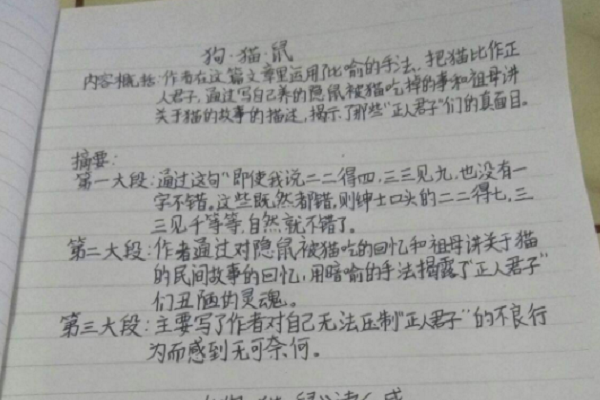 狗·猫·鼠
内容概括:作者在这篇文章里运用了比喻的手法、把猫比作正
人君子,通过写自己养的隐鼠被猫吃掉的事和祖母讲
关于猫的故事的描述,揭示了那些"正人君子"们的真面目。
摘要:
第一大段:通过这句"即使我说二二得四,三三见九,也没有一
字不错。这些既然都错,则绅士口头的二二得七,三
三见千等等,自然就不错了。
第二大段:作者通过对隐鼠被猫吃的回忆和祖母讲关于猫
的民间故事的回忆,用暗喻的手法揭露了"正人君子"
们丑陋的灵魂。
第三大段:主要写了作者对自己无法压制"正人君子"的不良行
为而感到无可奈何。